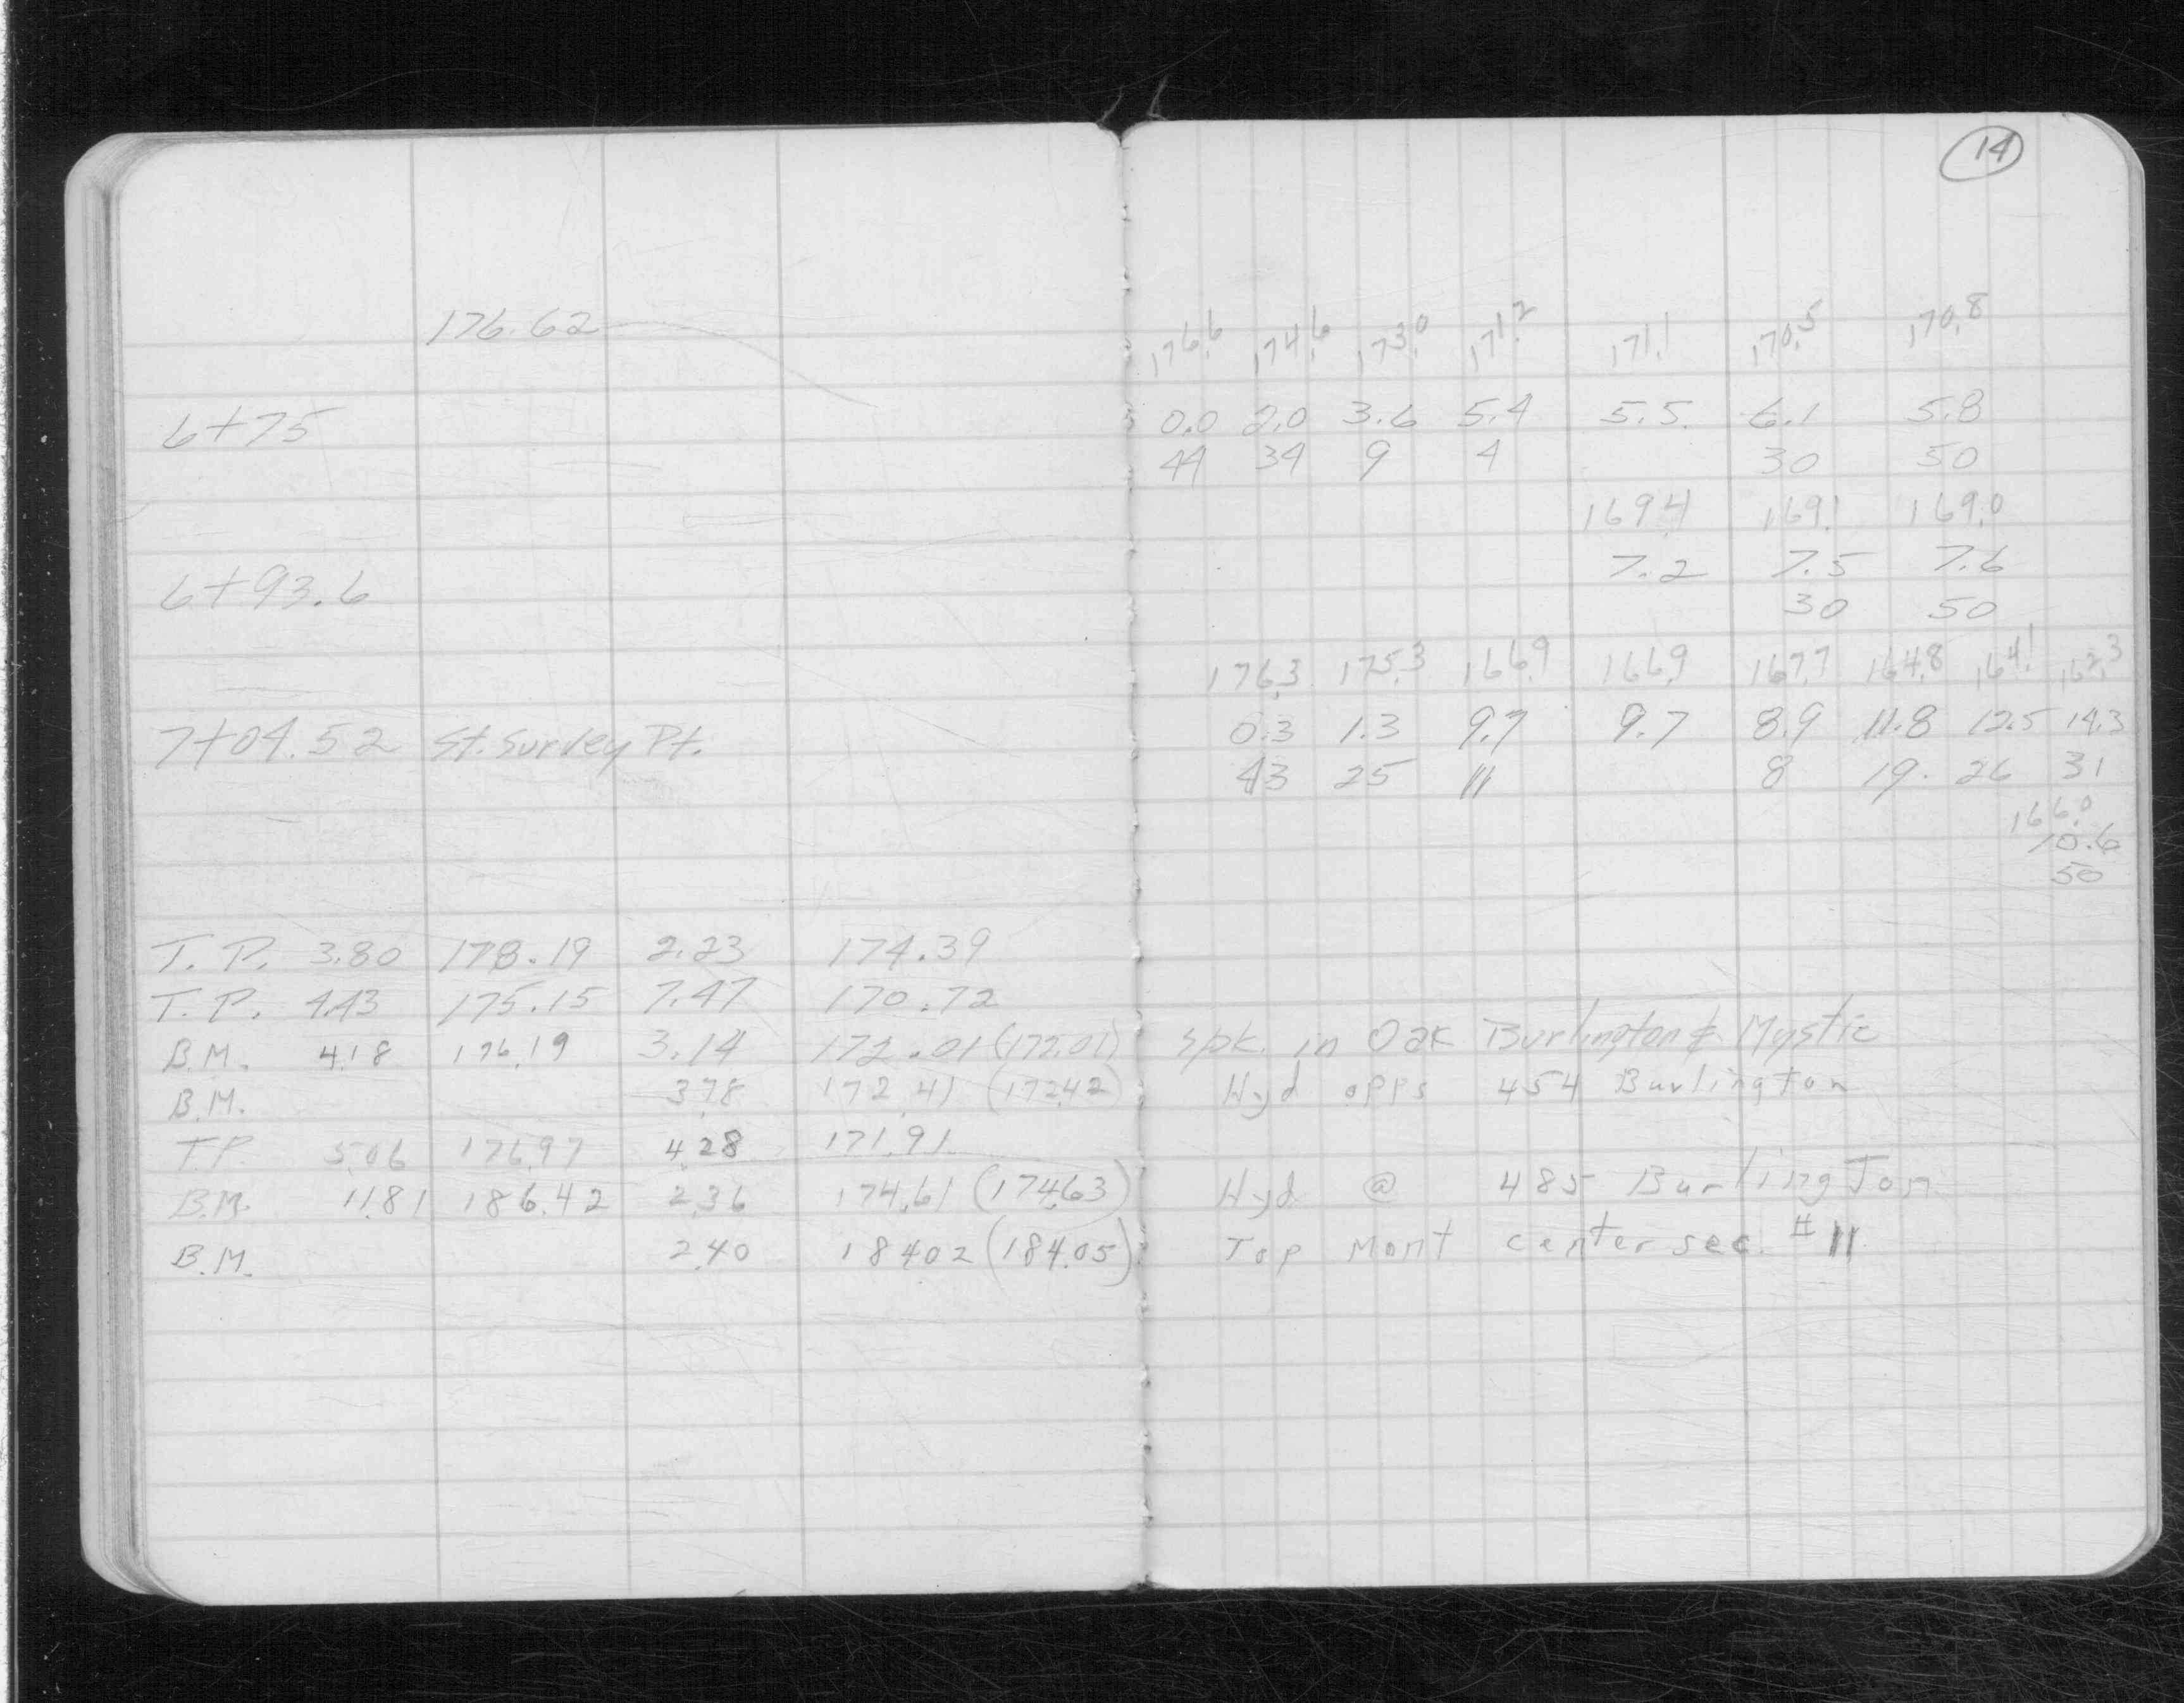 14
176.62 176.6 174.6 173.0 171.2 171.1 170.5 170.8
6+75 0.0 2.0 3.6 5.4 5.5 6.1 5.8
44 34 9 4 30 50
169.4 169.1 169.0
6+93.6 7.2 7.5 7.6
30 50
176.3 175.3 166.9 166.9 167.7 164.8 164.1 162.3
7+04.52 St. Survey Pt. 0.3 1.3 9.7 9.7 8.9 11.8 12.5 14.3
43 25 11 8 19 26 31
166.0
10.6
50
T.P. 3.80 178.19 2.23 174.39
T.P. 4.43 175.15 7.47 170.72
B.M. 4.18 176.19 3.14 172.01 (172.01) Spk. in Oak Burlington & Mystic
B.M. 3.78 172.41 (172.42) Hyd opps 454 Burlington
T.P. 5.06 176.97 4.28 171.91
B.M. 11.81 186.42 2.36 174.61 (174.63) Hyd. @ 485 Burlington
B.M. 2.40 184.02 (184.05) Top Mont center sec. #11